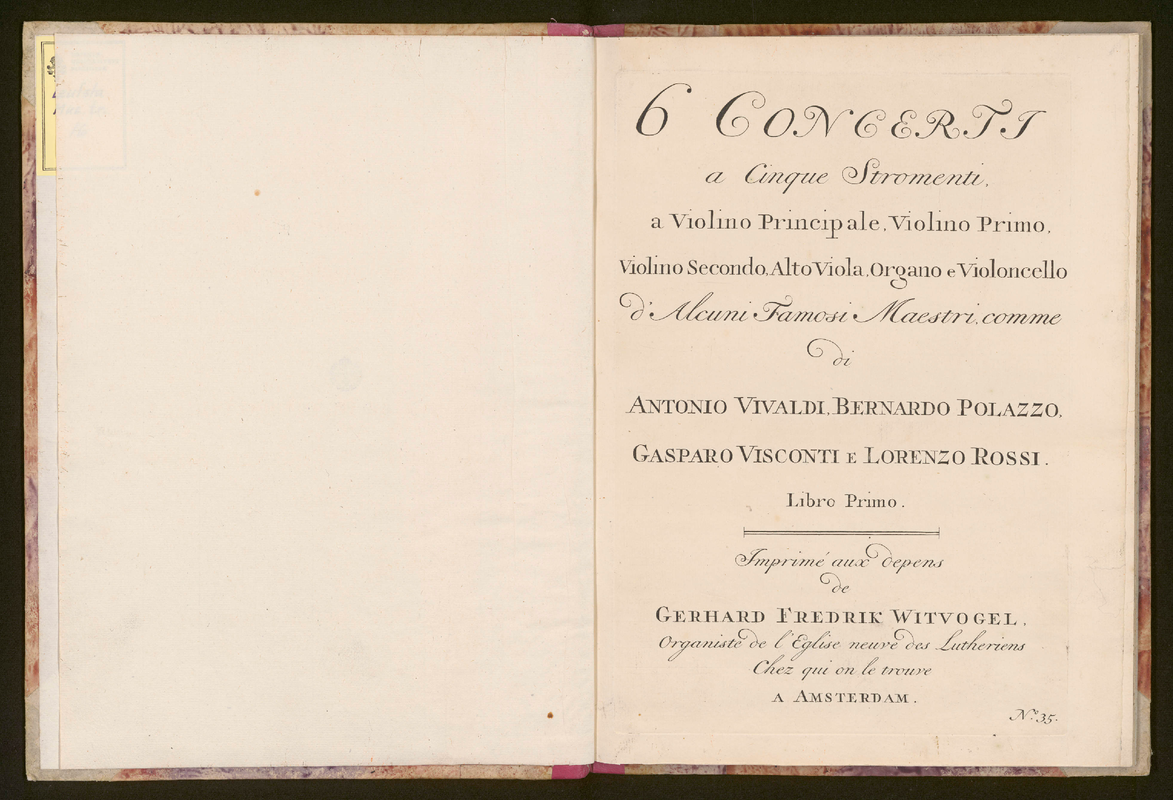 6 CONCERTI
a Cinque Stromenti,
a Violino Principale, Violino Primo,
Violino Secondo, Alto Viola, Organo e Violoncello
d'Alcuni Famosi Maestri, comme
di
ANTONIO VIVALDI, BERNARDO POLAZZO,
GASPARO VISCONTI E LORENZO ROSSI.
Libro Primo.
Imprimé aux depens
de
GERHARD FREDRIK WITVOGEL,
Organiste de l'Eglise neuve des Lutheriens
Chez qui on le trouve
A AMSTERDAM.
No. 35.